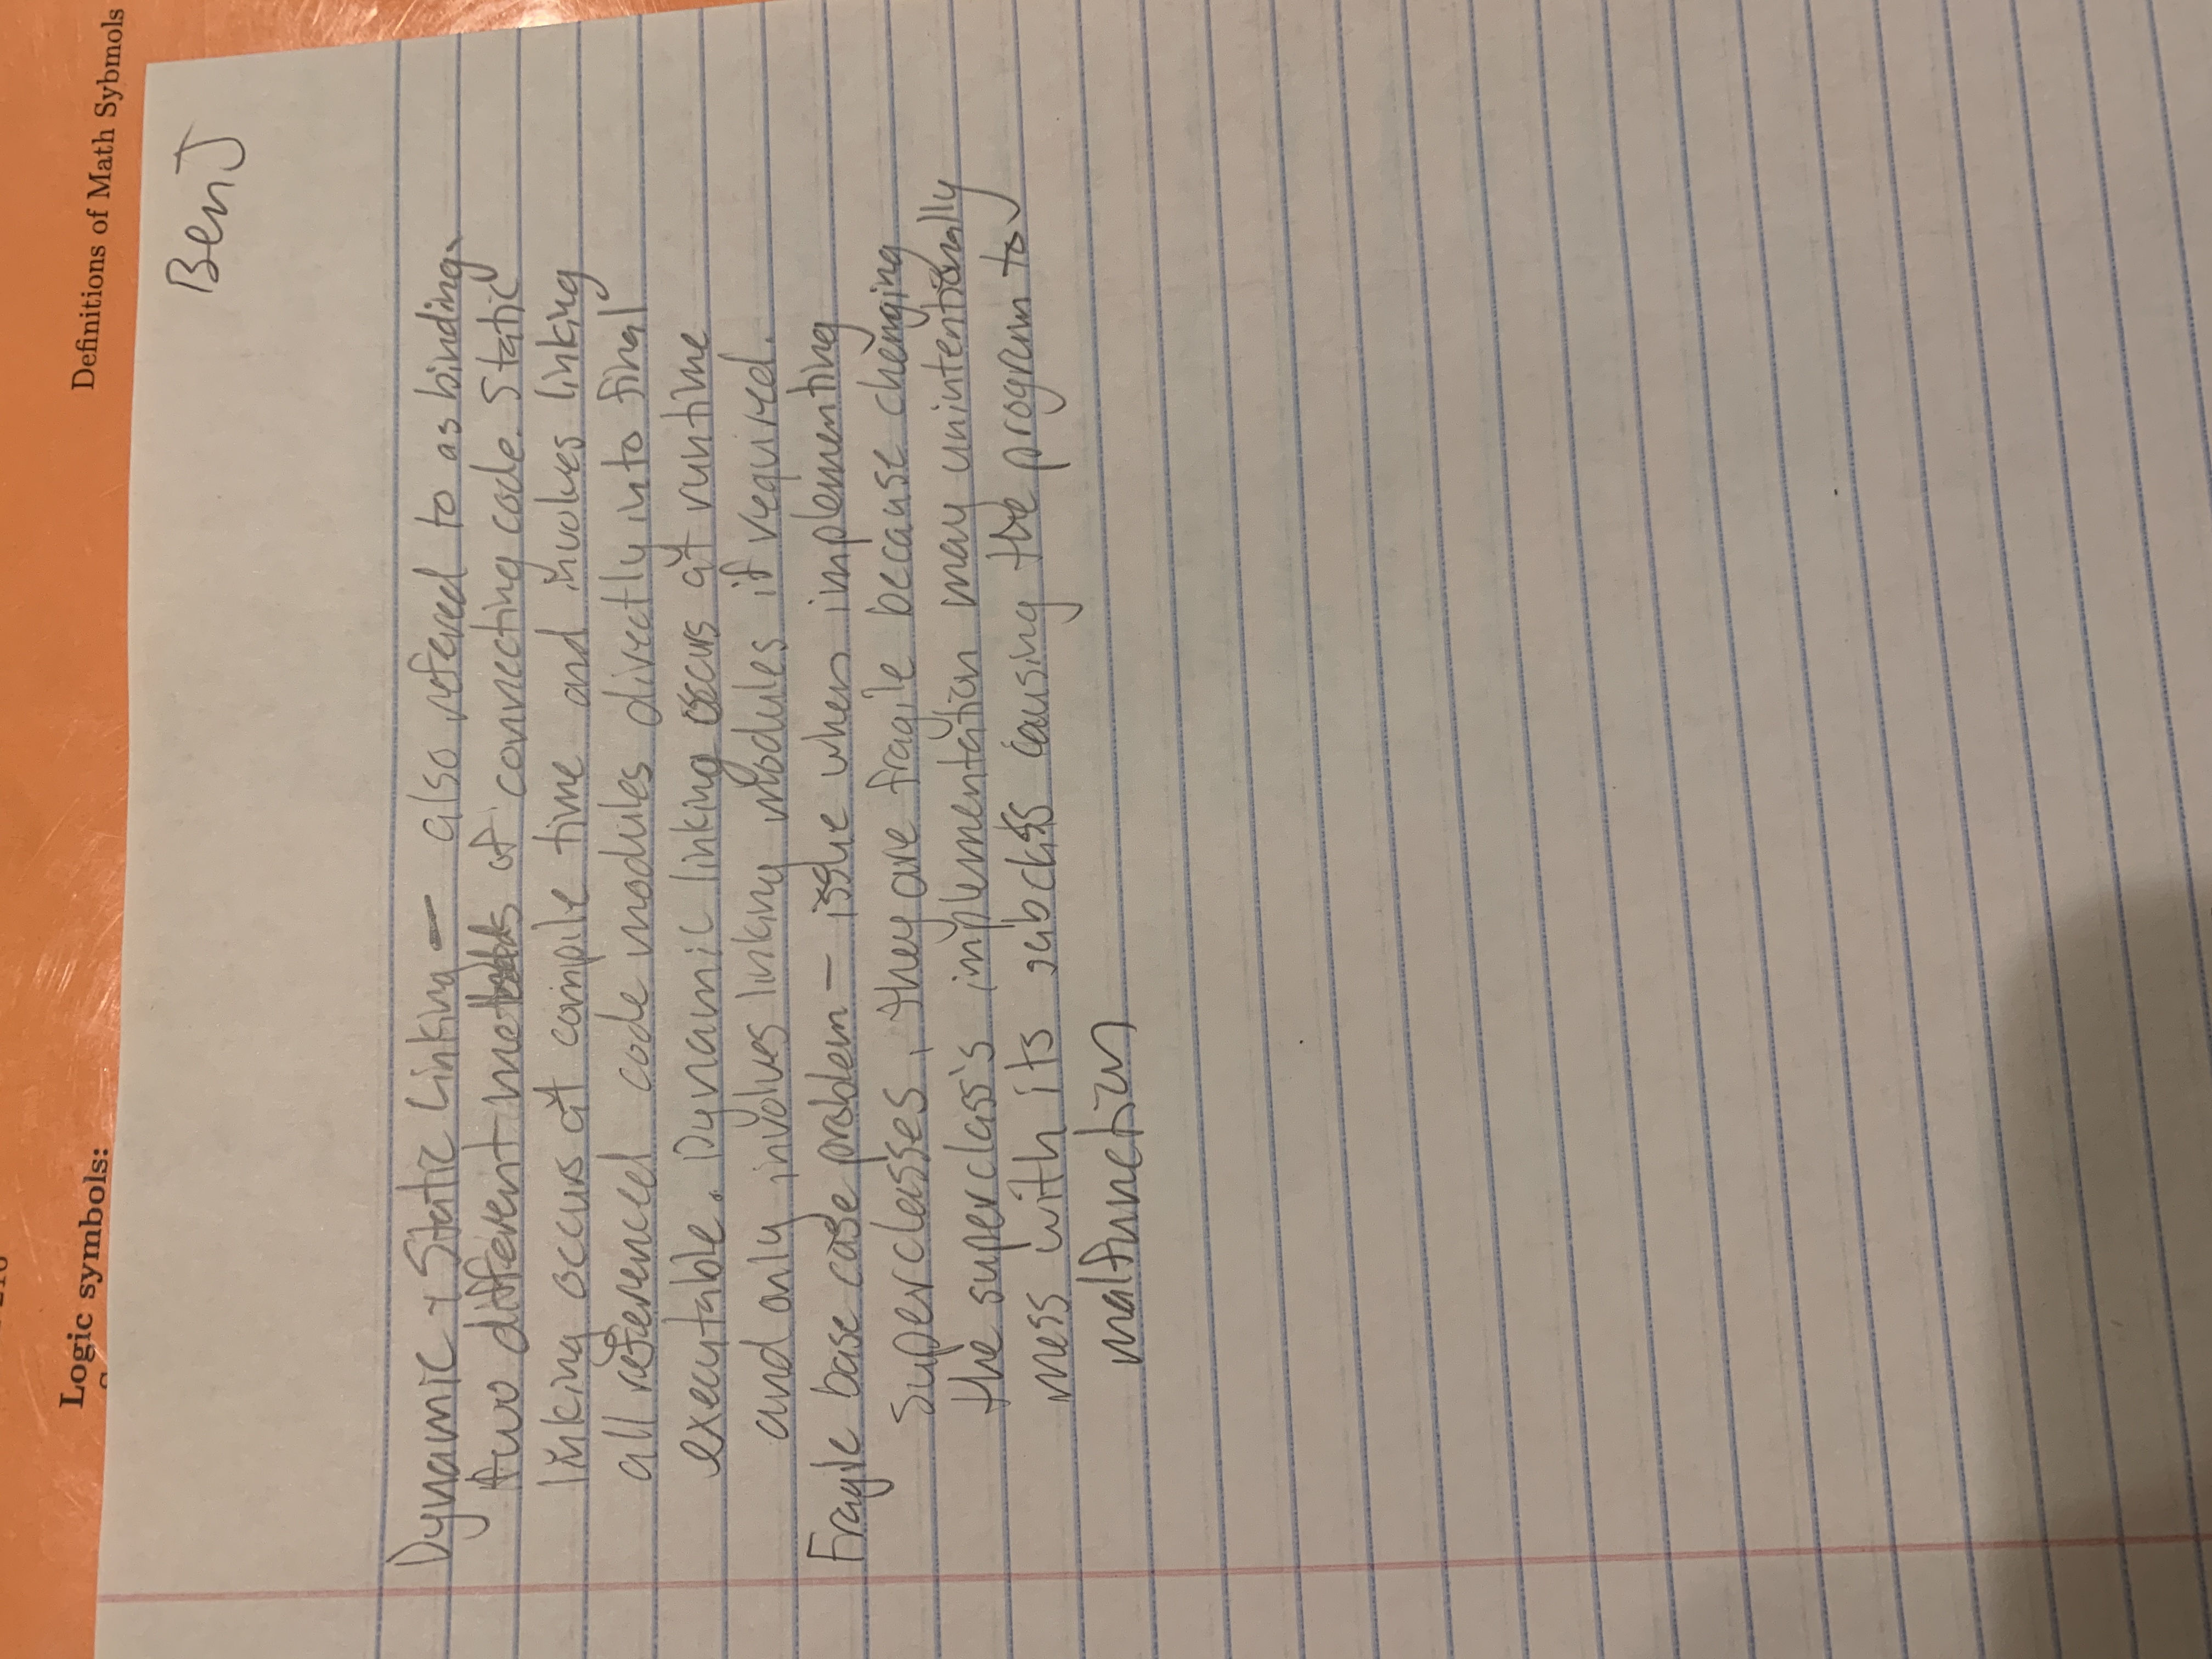 Logic symbols:
Definitions of Math Sybmols
Ben J
Dynamic + Static Linking - also refered to as binding.
two different methods of connecting code. Static
linking occurs at compile time and involves linking
all referenced code modules directly into final
executable. Dynamic linking occurs at runtime
and only involves linking modules if required.
Fragile base case problem - issue when implementing
superclasses, they are fragile because changing
the superclass's implementation may unintentionally
mess with its subclass causing the program to
malfunction